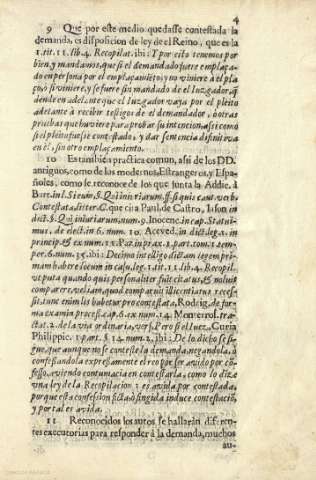 4
9 Que por este medio quedasse contestada la
demanda, es disposicion de ley de el Reino, que es la
1. tit. 11. lib. 4. Recopilat. ibi: Y por esto tenemos por
bien, y mandamos, que si el demandado fuere emplaça-
do en persona por el emplaçamiẽto, y no viniere à el pla-
ço, ò si viniere, y se fuere sin mandado de el Iuzgador, q̃
dende en adelante que el Iuzgador vaya por el pleito
adelante à recibir testigos de el demandador, ò otras
pruebas que huviere para probar su intencion, assi como
si el pleito fuesse contestado, y dar sentencia difinitiva
en èl, sin otro emplaçamiento.
10 Es tambiẽ a practica comun, assi de los DD.
antiguos, como de los modernos, Estrangeros, y Espa-
ñoles, como se reconoce de los que junta la Addic. à
Bart. in l. Si eum, §. Qui iniuriarum, ff. si quis caut. verb.
Contestata, litter. C. que cita à Paul. de Castro, Iason in
dict. §. Qui iniuriarum, num. 9. Inocenc. in cap. Statui-
mus, de elect. in 6. num. 10. Aceved. in dict. leg. 1. in
princip. & ex num. 11. Paz in prax. 1. part. tom. 1. tem-
por. 6. num. 35. ibi: Decimo intellige dictam legem pri-
mam habere locum in casu, leg. 1. tit. 11. lib. 4. Recopil.
ut puta quando quis personaliter fuit citatus, & noluit
comparere, vel iam quod comparuit illicentiatus reces-
sit, tunc enim lis habetur pro contestata, Rodrig. de for-
ma examin. process. cap. 6. ex num. 14. Monterrol. tra-
ctat. 2. de la via ordinaria, vers. Pero si el Iuez, Curia
Philippic. 1. part. §. 14. num. 2. ibi: De lo dicho se si-
gue, que aunque no se conteste la demanda, negandola, ò
confessandola expressamente el reo por ser avido por cõ-
fesso, aviendo contumacia en contestarla, como lo dize
una ley de la Recopilacion: es avida por contestada,
porque esta confession ficta, ò fingida induce contestaciõ,
y por tal es avida.
11 Reconocidos los autos se hallaràn diferen-
tes executorias para responder à la demanda, muchos
au-